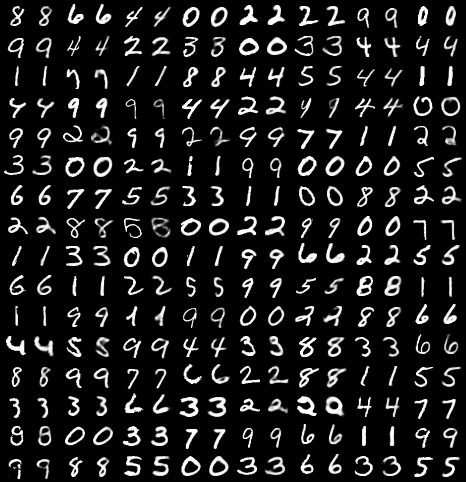 8 8 6 6 4 4 0 0 2 2 2 2 9 9 0 0
9 9 4 4 2 2 3 3 0 0 3 3 4 4 4 4
1 1 7 7 1 1 8 8 4 4 5 5 4 4 1 1
4 4 9 9 9 9 4 4 2 2 4 9 4 4 0 0
9 9 2 2 9 9 2 2 9 9 7 7 1 1 2 2
3 3 0 0 2 2 1 1 9 9 0 0 0 0 5 5
6 6 7 7 5 5 3 3 1 1 0 0 8 8 2 2
2 2 8 8 5 8 0 0 2 2 9 9 0 0 7 7
1 1 3 3 0 0 1 1 9 9 6 6 2 2 5 5
6 6 1 1 2 2 5 5 9 9 5 5 8 8 1 1
1 1 9 9 1 1 9 9 0 0 2 2 8 8 6 6
4 4 5 5 9 9 4 4 3 3 8 8 3 3 6 6
8 8 9 9 7 7 6 6 2 2 8 8 1 1 5 5
3 3 3 3 6 6 3 3 2 2 2 4 4 7 7
8 8 0 0 3 3 7 7 9 9 6 6 1 1 9 9
9 9 8 8 5 5 0 0 3 3 6 6 3 3 5 5